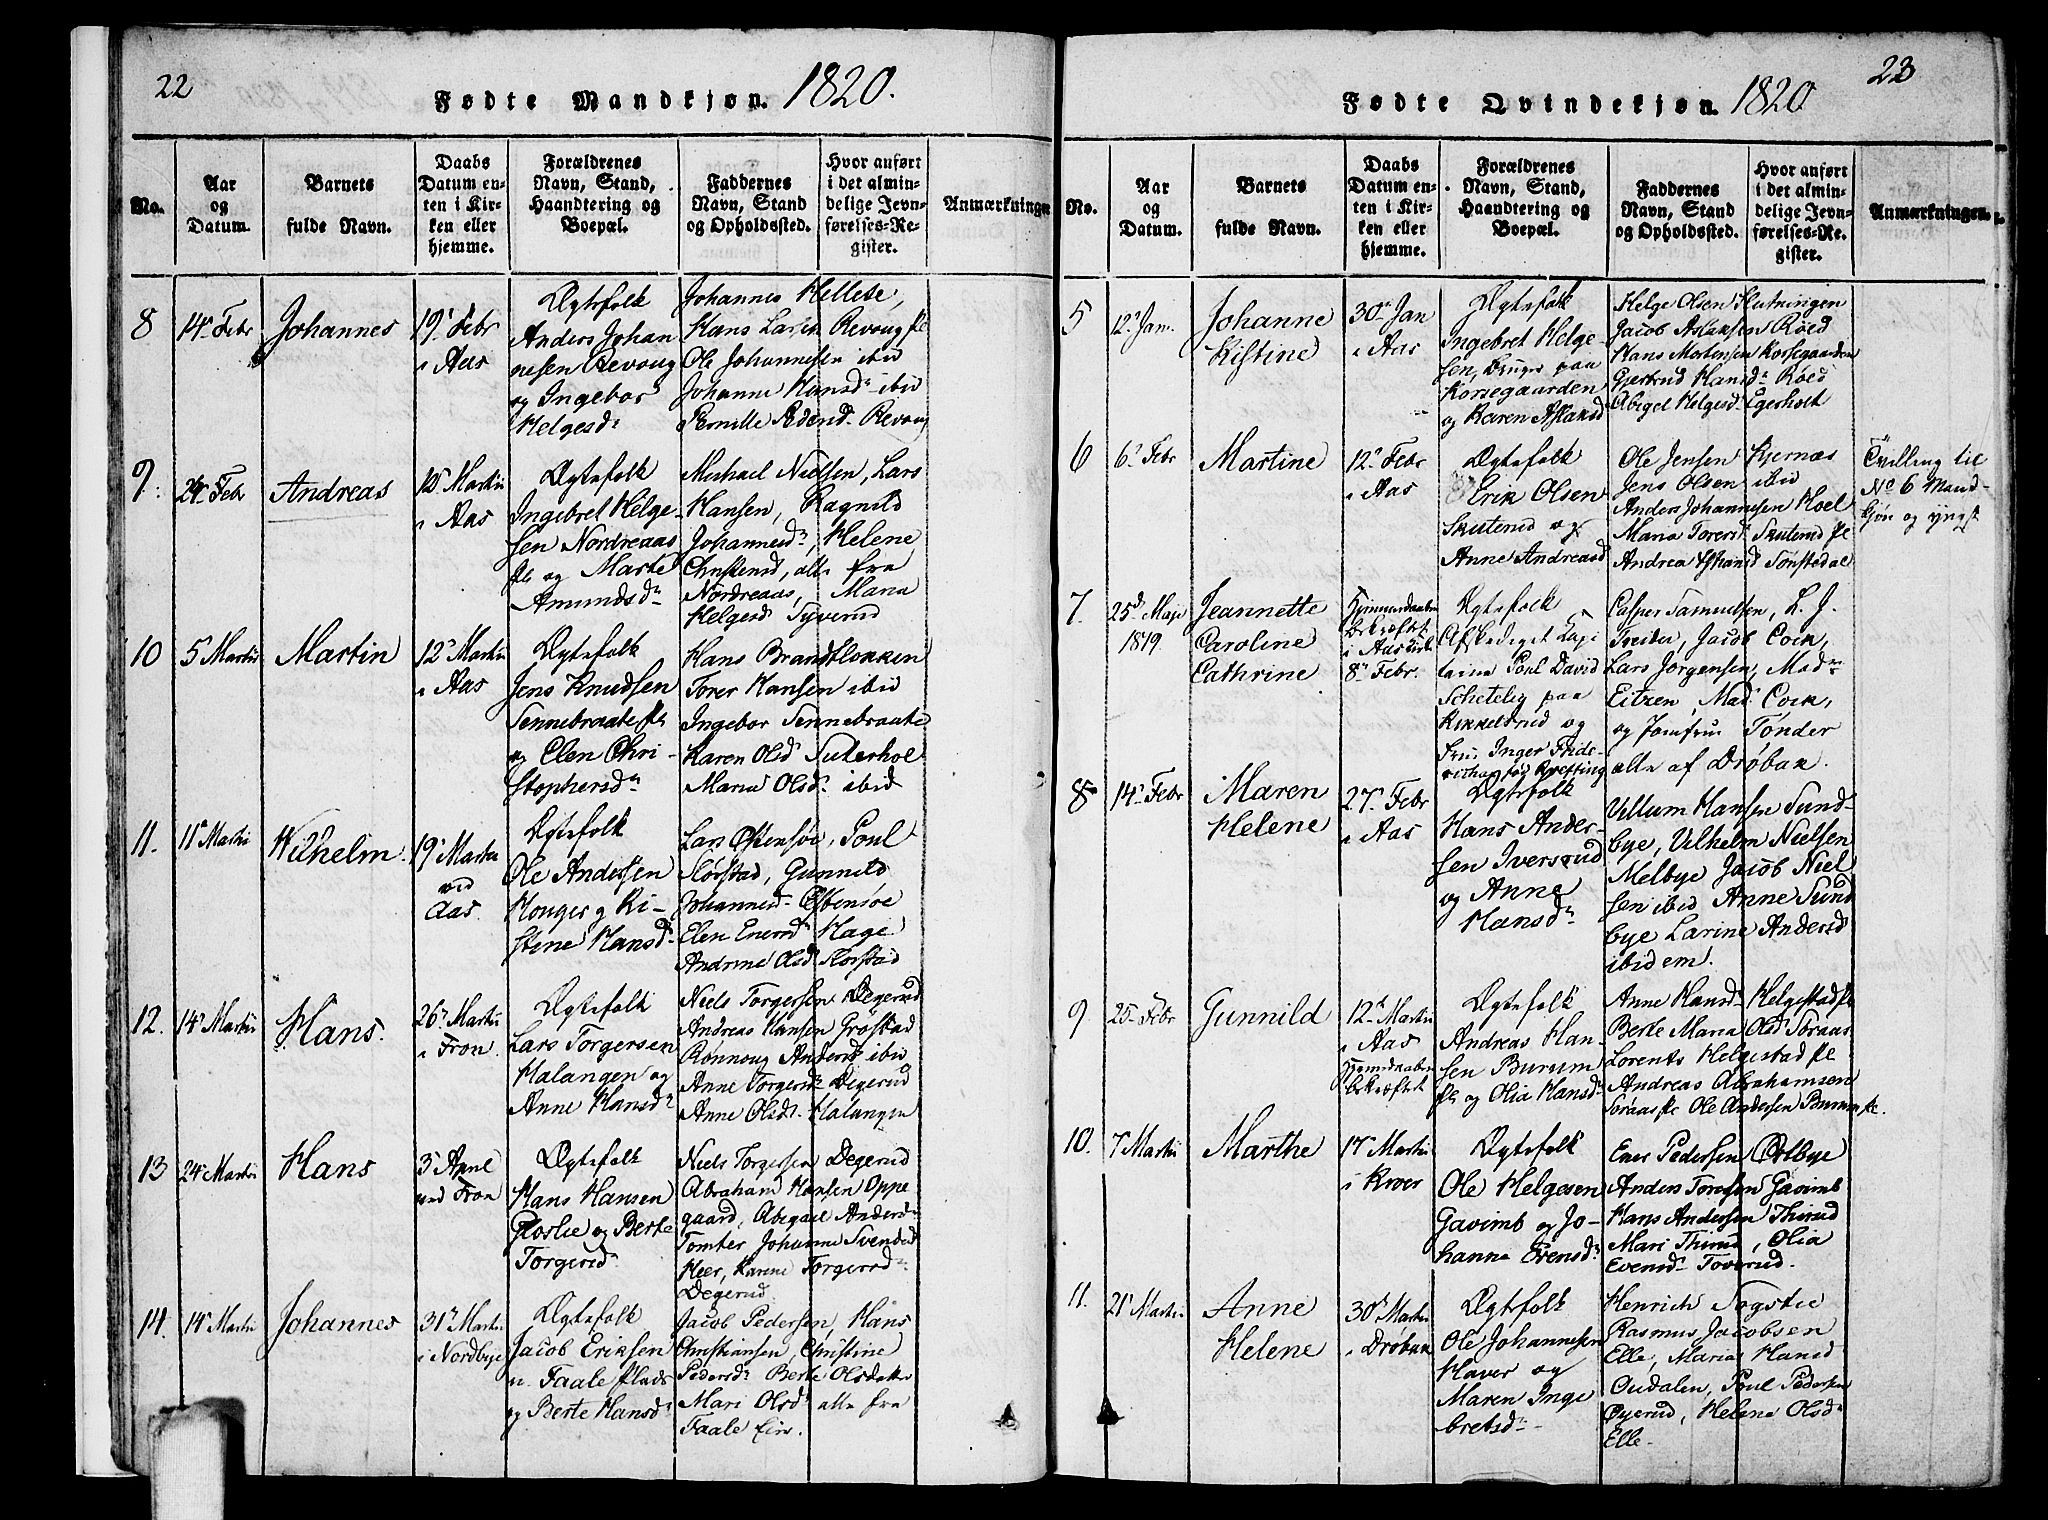 22
Fødte Mandkjøn. 1820.
No.
Aar
og
Datum.
Barnets
fulde Navn.
Daabs
Datum en-
ten i Kir-
ken eller
hjemme.
Forældrenes
Navn, Stand,
Haandtering og
Boepæl.
Faddernes
Navn, Stand
og Opholdssted.
Hvor anført
i det almin-
delige Jevn-
førelses-Re-
gister.
Anmærkninger
8
14 Febr
Johannes
19 Febr
i Aas
Ægtefolk
Anders Johan
nesen Revoug
og Ingebor
Helgesd
Johannes Hellese,
Hans Larsen Revoug
Ole Johannesen ibid
Johanne Hansd ibid
Pernille Pedersd Revoug
9.
24 Febr
Andreas
12 Martii
i Aas
Ægtefolk
Ingebret Helge-
sen Nordreaas
og Marte
Amundsd
Michael Nielsen, Lars
Hansen, Ragnild
Johannesd, Helene
Christensd, alle fra
Nordreaas, Maria
Helgesd Tyverud
10
5 Martii
Martin
12 Martii
i Aas
Ægtefolk
Jens Knudsen
Sennebraate
og Elen Chri-
stophersd
Hans Brandtløkken
Torer Hansen ibid
Ingebor Sennebraate
Karen Olsd Suterhol
Maria Olsd ibid
11.
11 Martii
Wilhelm
19 Martii
ved
Aas.
Ægtefolk
Ole Andersen
Houger og Ki-
stine Hansd
Lars Østensøe, Poul
Slørstad, Gunnild
Johannesd Østensøe
Elen Enersd Hage
Andrine Olsd Slorstad
12.
14 Martii
Hans.
26 Martii
i Fron.
Ægtefolk
Lars Torgersen
Halangen og
Anne Hansd
Niels Torgersen Degerud
Andreas Hansen Frøstad
Rønnoug Andersd ibid
Anne Torgersd Degerud
Anne Olsd Halangen
13
24 Martii
Hans
3 April
ved Fron
Ægtefolk
Hans Hansen
Gloslie og Berte
Torgersd
Niels Torgersen Degerud
Abraham Hansen Oppe
gaard, Abigael Andersd
Tomter Johanne Svendsd
Heer, Karene Torgersd
Degerud
14.
14 Martii
Johannes
31 Martii
i Nordbye
Ægtefolk
Jacob Eriksen
u. Faale Plads
og Berte Hansd
Jacob Pedersen, Hans
Christiansen, Christine
Pedersd Berte Olsdatter
Mari Olsd alle fra
Faale Eie.
23
Fødte Qvindekjøn. 1820
No.
Aar
og
Datum.
Barnets
fulde Navn.
Daabs
Datum en-
ten i Kir-
ken eller
hjemme.
Forældrenes
Navn, Stand,
Haandtering og
Boepæl.
Faddernes
Navn, Stand
og Opholdssted.
Hvor anført
i det almin-
delige Jevn-
førelses-Re-
gister.
Anmærkninger.
5
12 Jan.
Johanne
Kistine
30 Jan
i Aas
Ægtefolk
Ingebret Helge-
sen, Bruger paa
Korsegaarden
og Karen Aslaksd
Helge Olsen Hutningen
Jacob Aslaksen Røed
Hans Mortensen Korsegaarden
Gjertrud Hansd Røed
Abigel Helgesd Egerholt
6
6 Febr
Martine
12 Febr
i Aas
Ægtefolk
Erik Olsen
Skuterud og
Anne Andreasd
Ole Jensen Kjernæs
Jens Olsen ibid
Anders Johannesen Hoel
Maria Torersd Skuterud
Andrea Tønstedal
Tvilling til
No 6 Mand-
kjøn og yngst
7.
25 Maji
1819.
Jeannette
Caroline
Cathrine
Hjemmedaaben
bekræftet
i Aas Kirke
8 Febr.
Ægtefolk
Afskediget Capi
taine Poul David
Schetelig paa
Kikkelsrud og
Frue Inger Fride-
richa fød Bretting
Casper Samuelsen, L. J.
Jacob Coch,
Lars Jørgensen, Mad
Eitzen, Mad Coch,
og Jomfrue Tønder
alle af Drøbak.
8
14 Febr
Maren
Helene
27 Febr
i Aas
Ægtefolk
Hans Ander-
sen Iversrud
og Anne
Hansd
Villum Hansen Sund-
bye, Vilhelm Nielsen
Melbye Jacob Niel
sen ibid Anne Sund
bye Larine Andersd
ibidem.
9
25 Febr
Gunnild
12 Martii
i Aas
Hjemdaaben
bekræftet
Ægtefolk
Andreas Han-
sen Burum
og Olia Hansd
Anne Hansd Helgestad
Berte Maria Olsd Soraas
Lorents Helgestad
Andreas Abrahamsen
Soraas Ole Andersen Burum
10.
7 Martii
Marthe
17 Martii
i Kroer
Ægtefolk
Ole Helgesen
Gavimb og Jo-
hanna Evensd
Ener Pedersen Østbye
Anders Toresen Gavimb
Hans Andersen Thirud
Mari Thirud, Olia
Evensd Toverud.
11.
21 Martii
Anne
Helene
30 Martii
i Drøbak
Ægtefolk
Ole Johannesen
Haver og
Maren Inge
bretsd
Henrich Sogstie
Rasmus Jacobsen
Elle, Maria Hansd
Oudalen, Poul Pedersen
Øyerud, Helena Olsd
Elle.